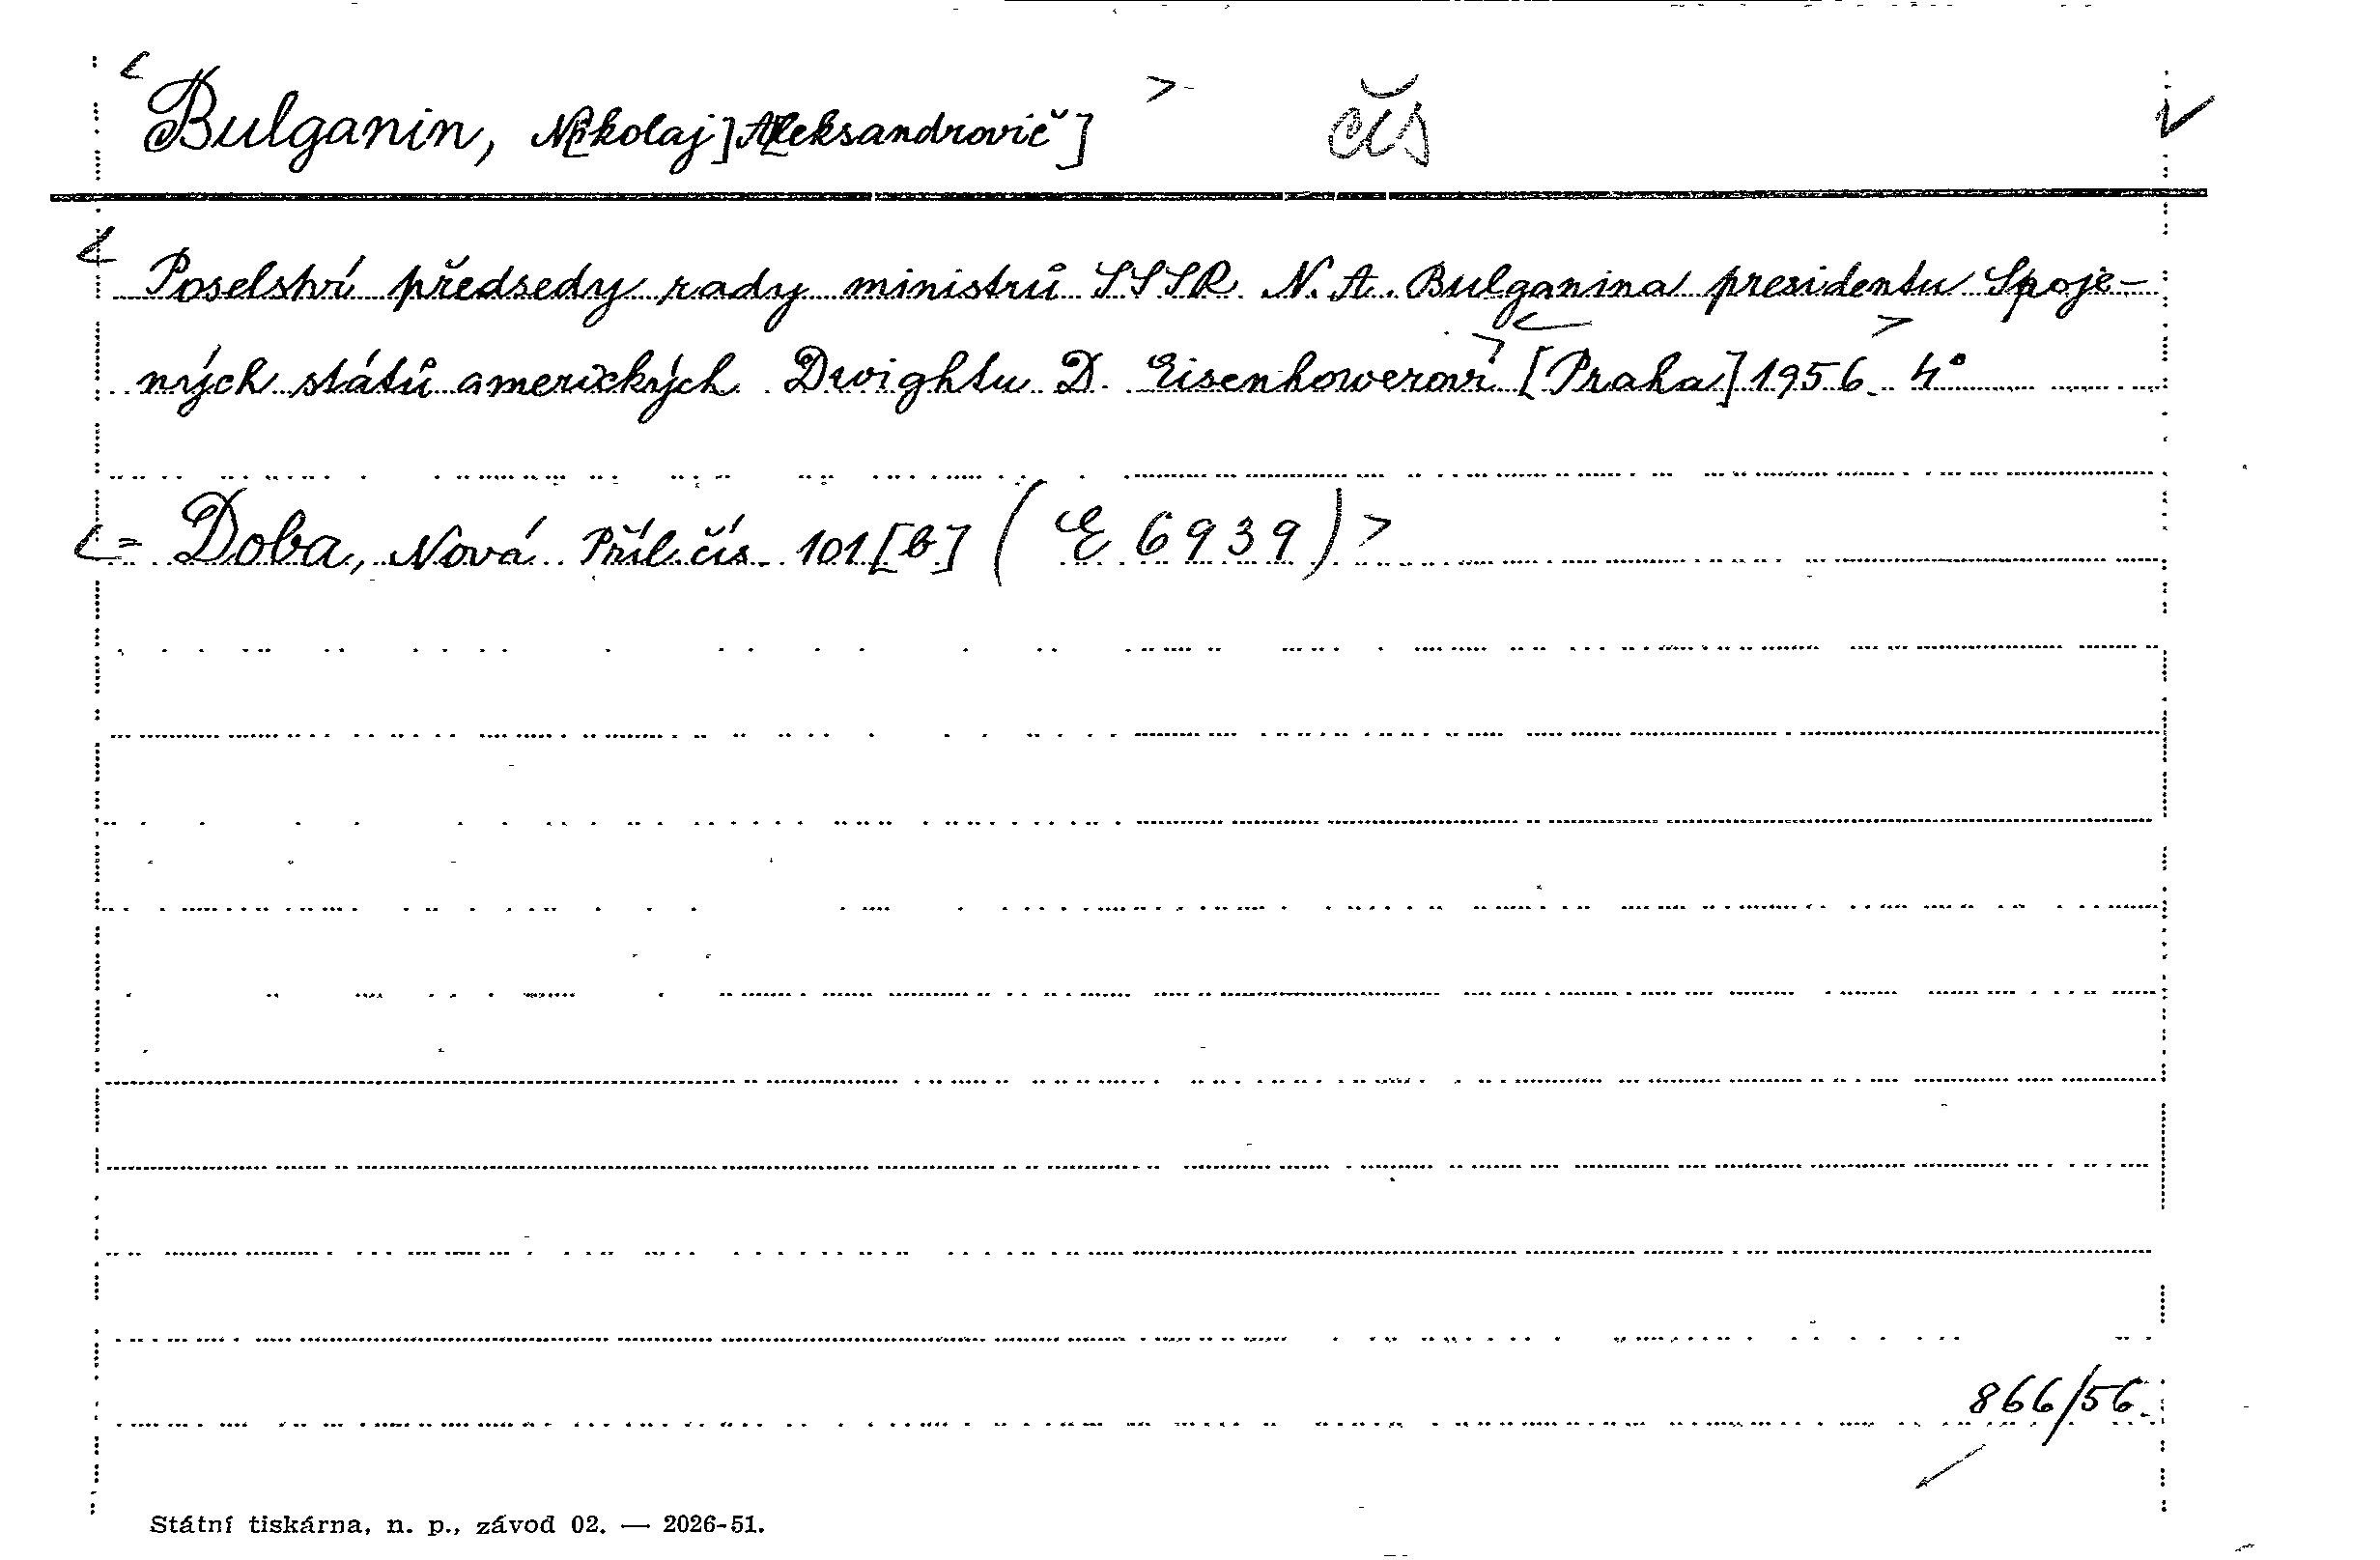 < Bulganin, N[ikolaj] A[leksandrovič] > čís
< Poselství předsedy rady ministrů SSSR N. A. Bulganina presidentu Spoje-
ných států amerických Dwightu D. Eisenhowerovi > < [Praha] 1956. > 4°
< = Doba, Nová Příl. čís. 101 [b] (E 6939) >
866/56.
Státní tiskárna, n. p., závod 02. — 2026-51.